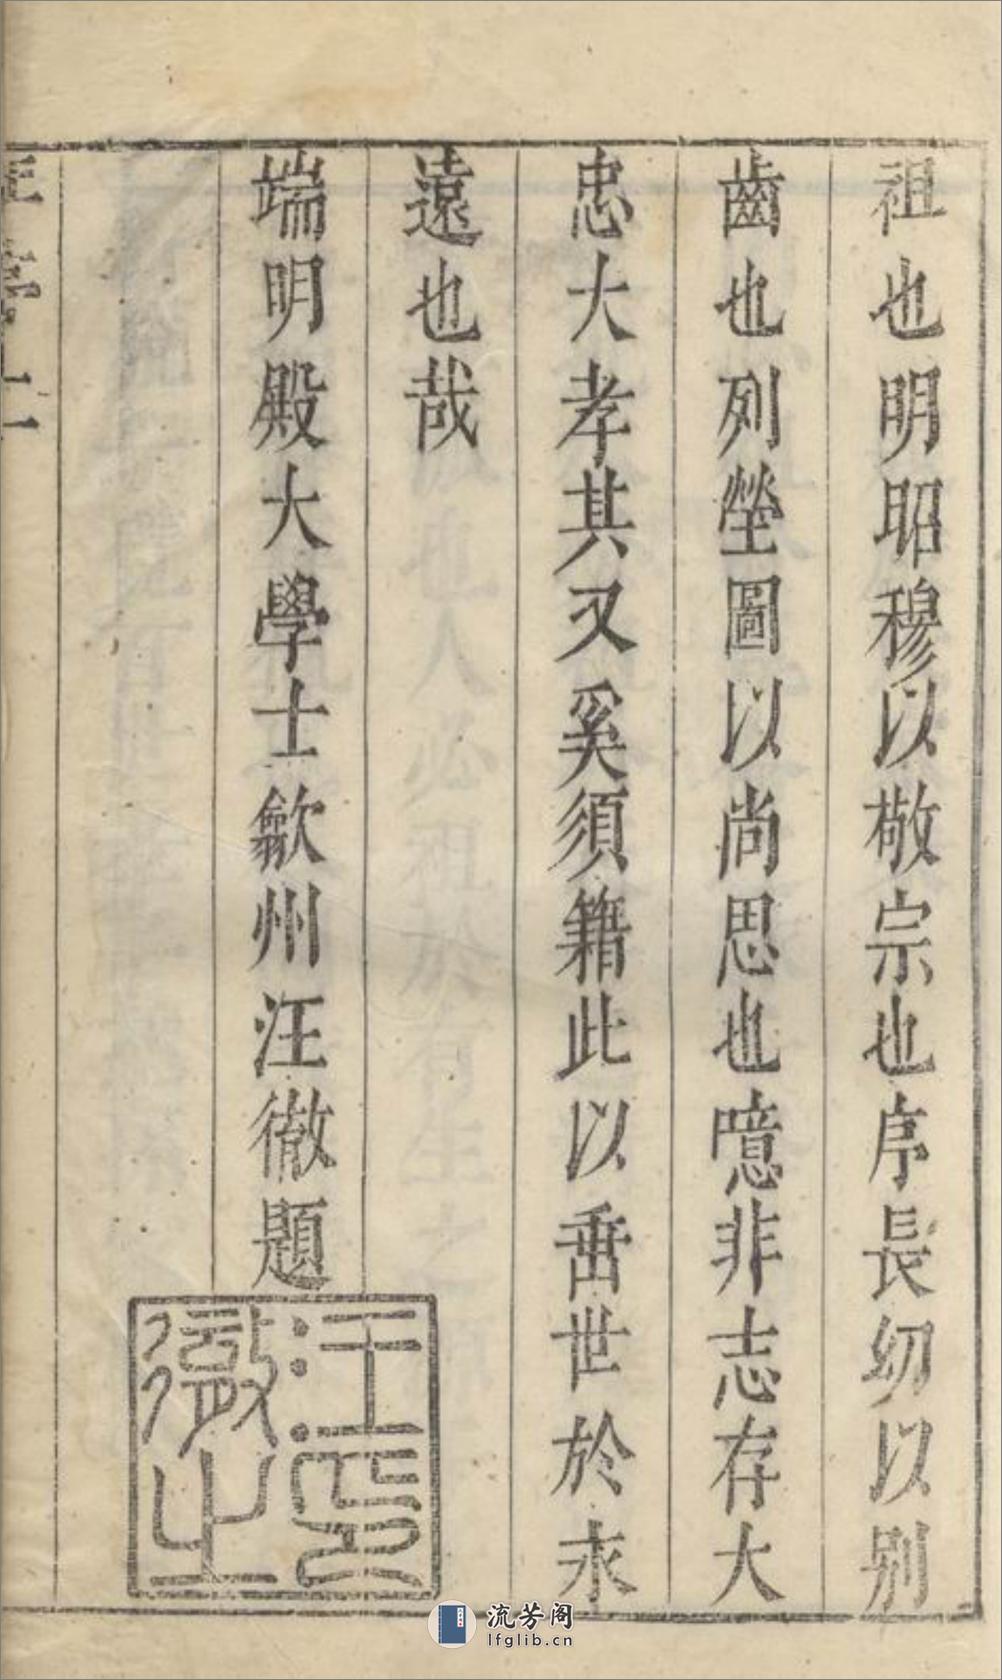 祖也明昭穆以敬宗也序長幼以別
齒也列塋圖以尚思也噫非志存大
忠大孝其又奚須籍此以垂世於永
遠也哉
端明殿大學士歙州汪徹題
流芳阁
lfglib.cn